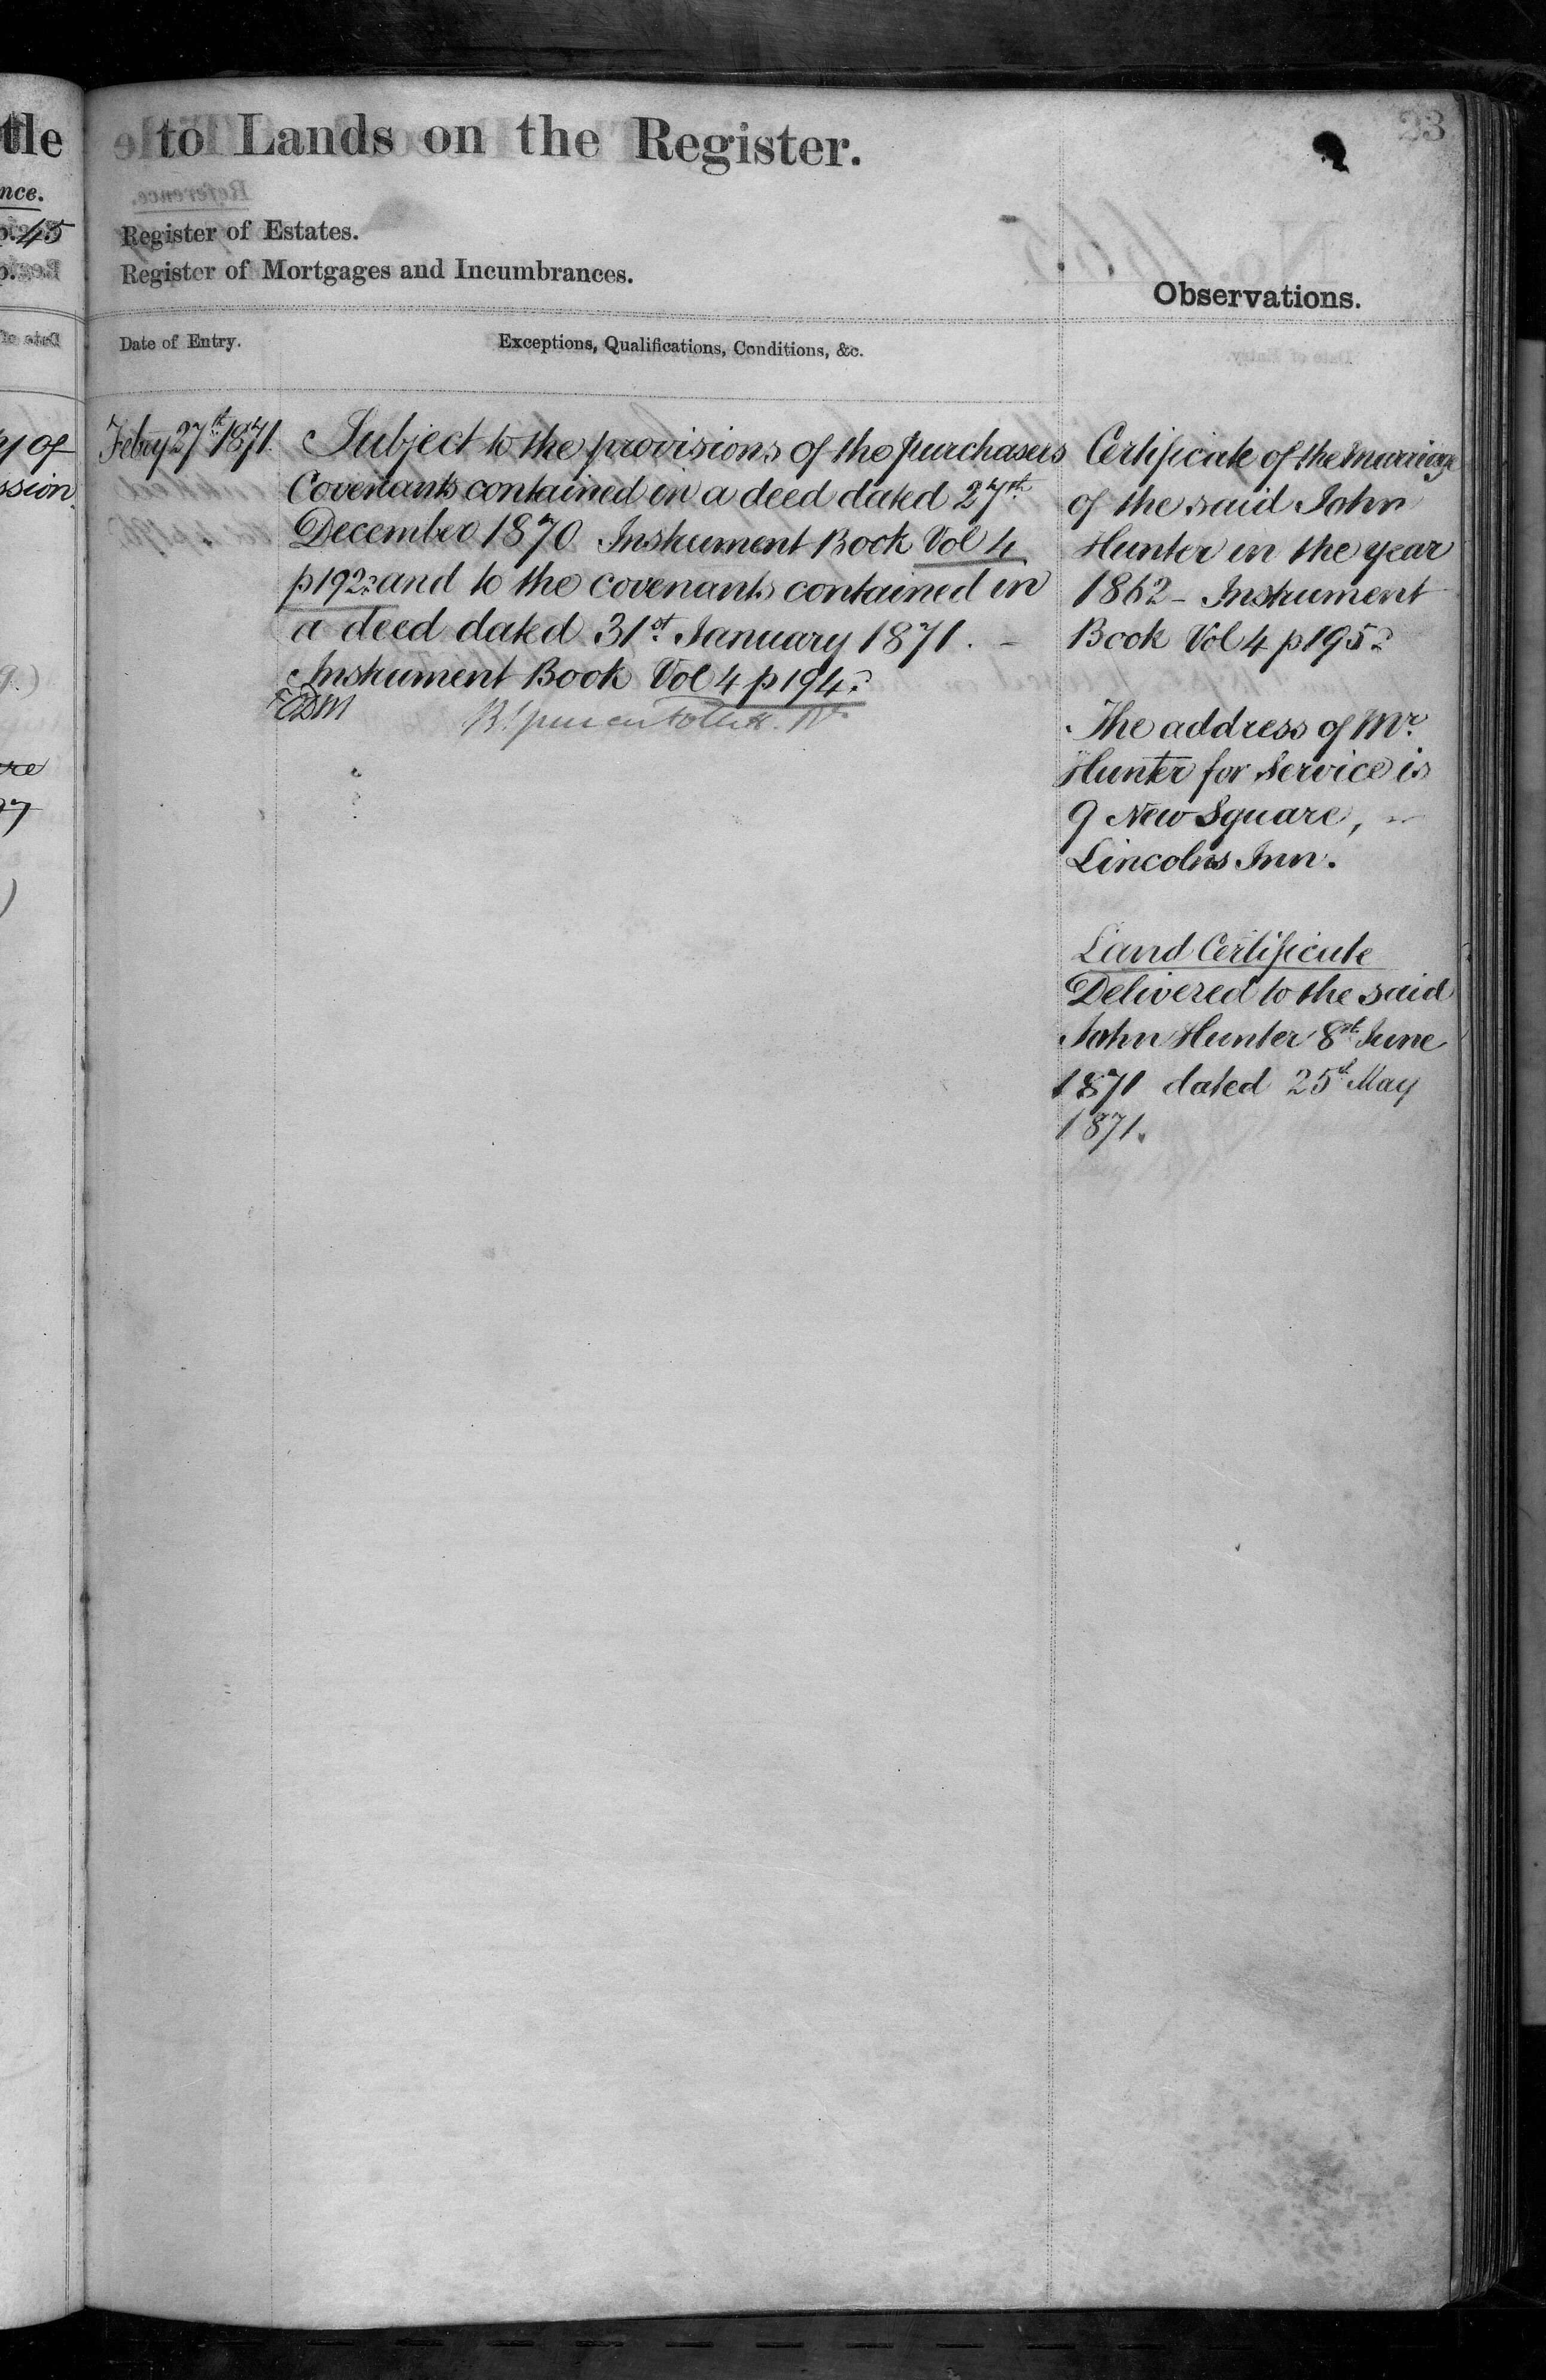 tle
nce.
45
y of
ssion
23
to Lands on the Register.
Register of Estates.
Register of Mortgages and Incumbrances.
Observations.
Date of Entry.
Exceptions, Qualifications, Conditions, &c.
Febry 27th 1871.
Subject to the provisions of the purchasers
Covenants contained in a deed dated 27th
December 1870 Instrument Book Vol 4
p192. and to the covenants contained in
a deed dated 31st January 1871. –
Instrument Book Vol 4 p194.
Certificate of the marriage
of the said John
Hunter in the year
1862 – Instrument
Book Vol 4 p195.
The address of Mr.
Hunter for service is
9 New Square,
Lincolns Inn.
Land Certificate
Delivered to the said
John Hunter 8th June
1871 dated 25th May
1871.